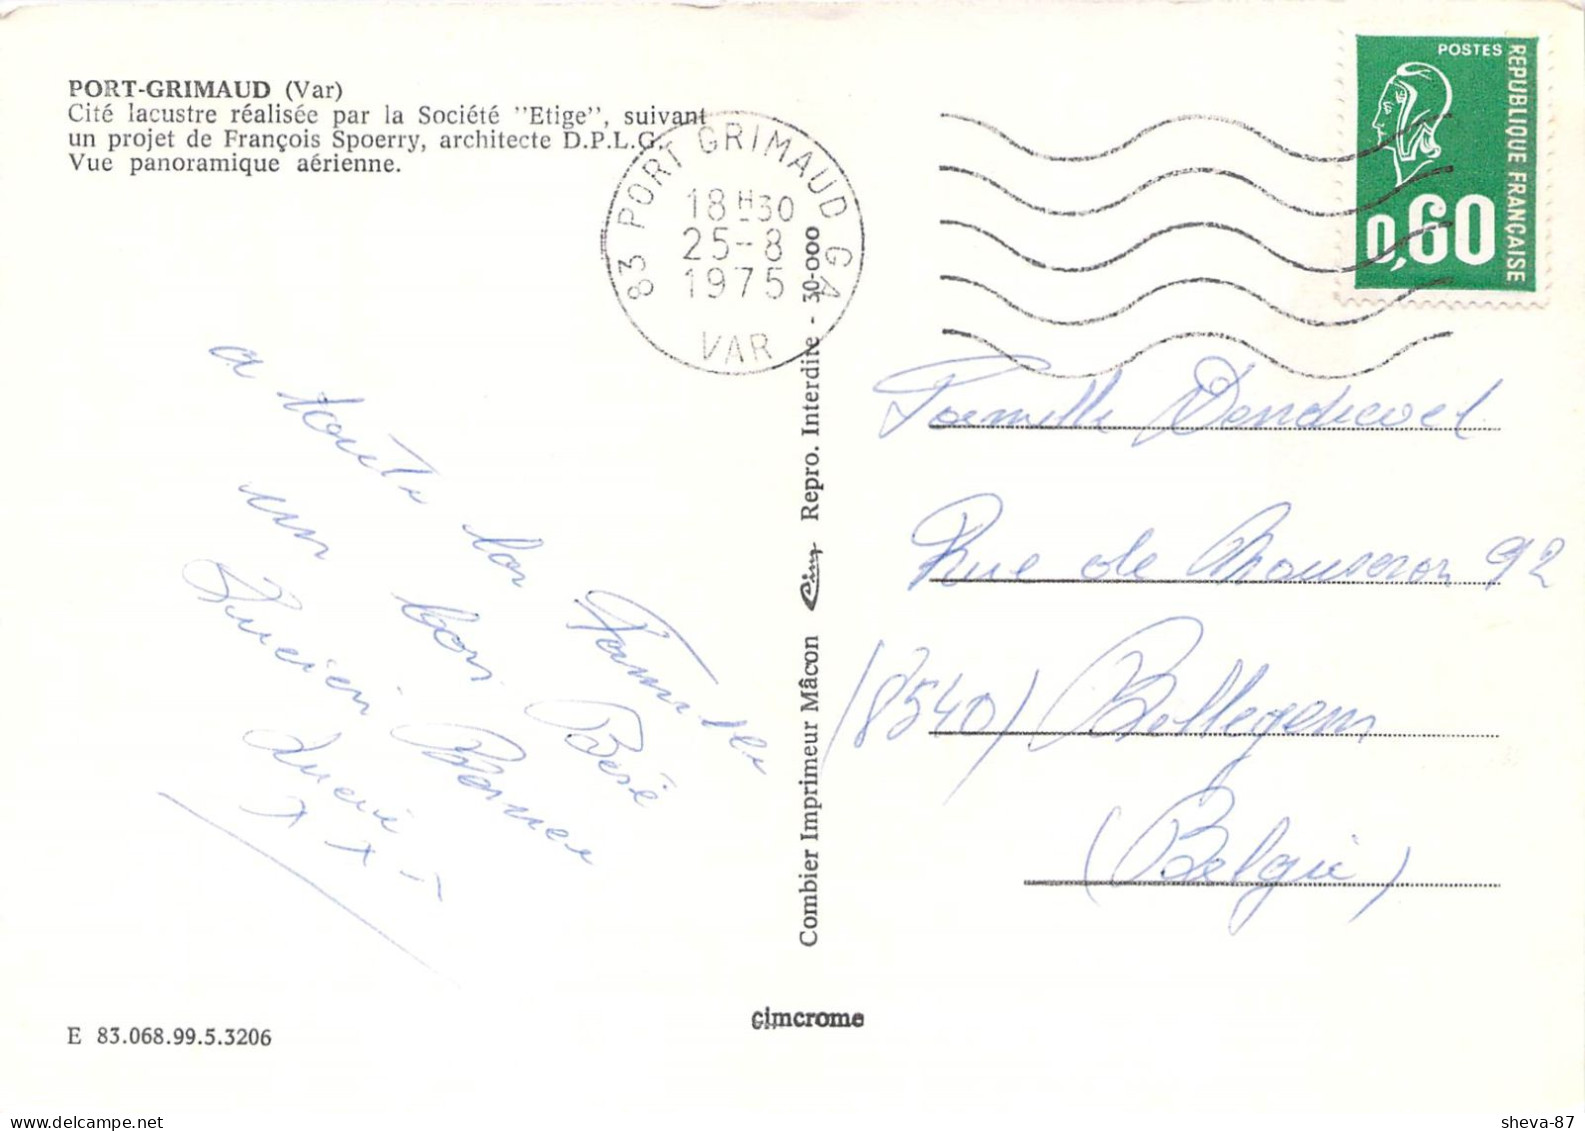 PORT-GRIMAUD (Var)
Cité lacustre réalisée par la Société "Etige", suivant
un projet de François Spoerry, architecte D.P.L.G.
Vue panoramique aérienne.
83 PORT GRIMAUD GA
18H30
25-8
1975
VAR
POSTES
REPUBLIQUE FRANÇAISE
0,60
a toute la Famille
un bon Besé
Lucien
Lucie
Famille Dendievel
Rue de Mouscron 92
(8540) Bellegem
(Belgie)
Combier Imprimeur Mâcon Cim Repro. Interdite - 30-000
cimcrome
E 83.068.99.5.3206
sheva-87